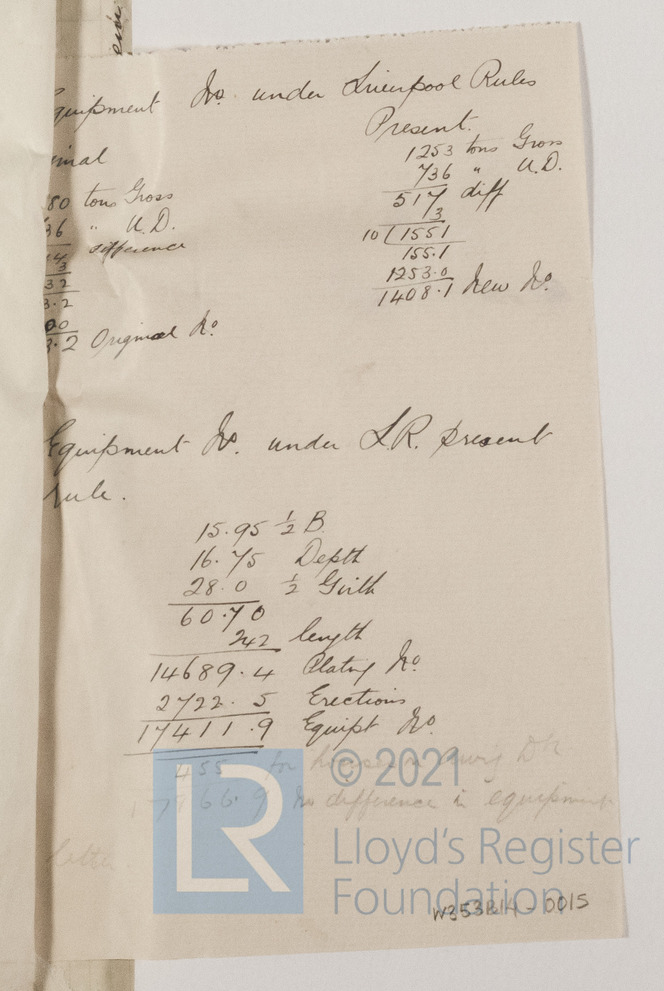 quipment No. under Liverpool Rules
inal
80 tons Gross
36 " U.D.
difference
3
32
3.2
00
3.2 Original No.
Present.
1253 tons Gross
736 " U.D.
517 diff
3
10 (1551
155.1
1253.0
1408.1 New No.
Equipment No. under L.R. present
rule.
15.95 ½ B
16.75 Depth
28.0 ½ Girth
60.70
242 length
14689.4 Plating No.
2722.5 Erections
17411.9 Equipt No.
455 for houses
17866.9 No difference in equipment
letter.
LR
© 2021
Lloyd's Register
Foundation
W353B14-0015